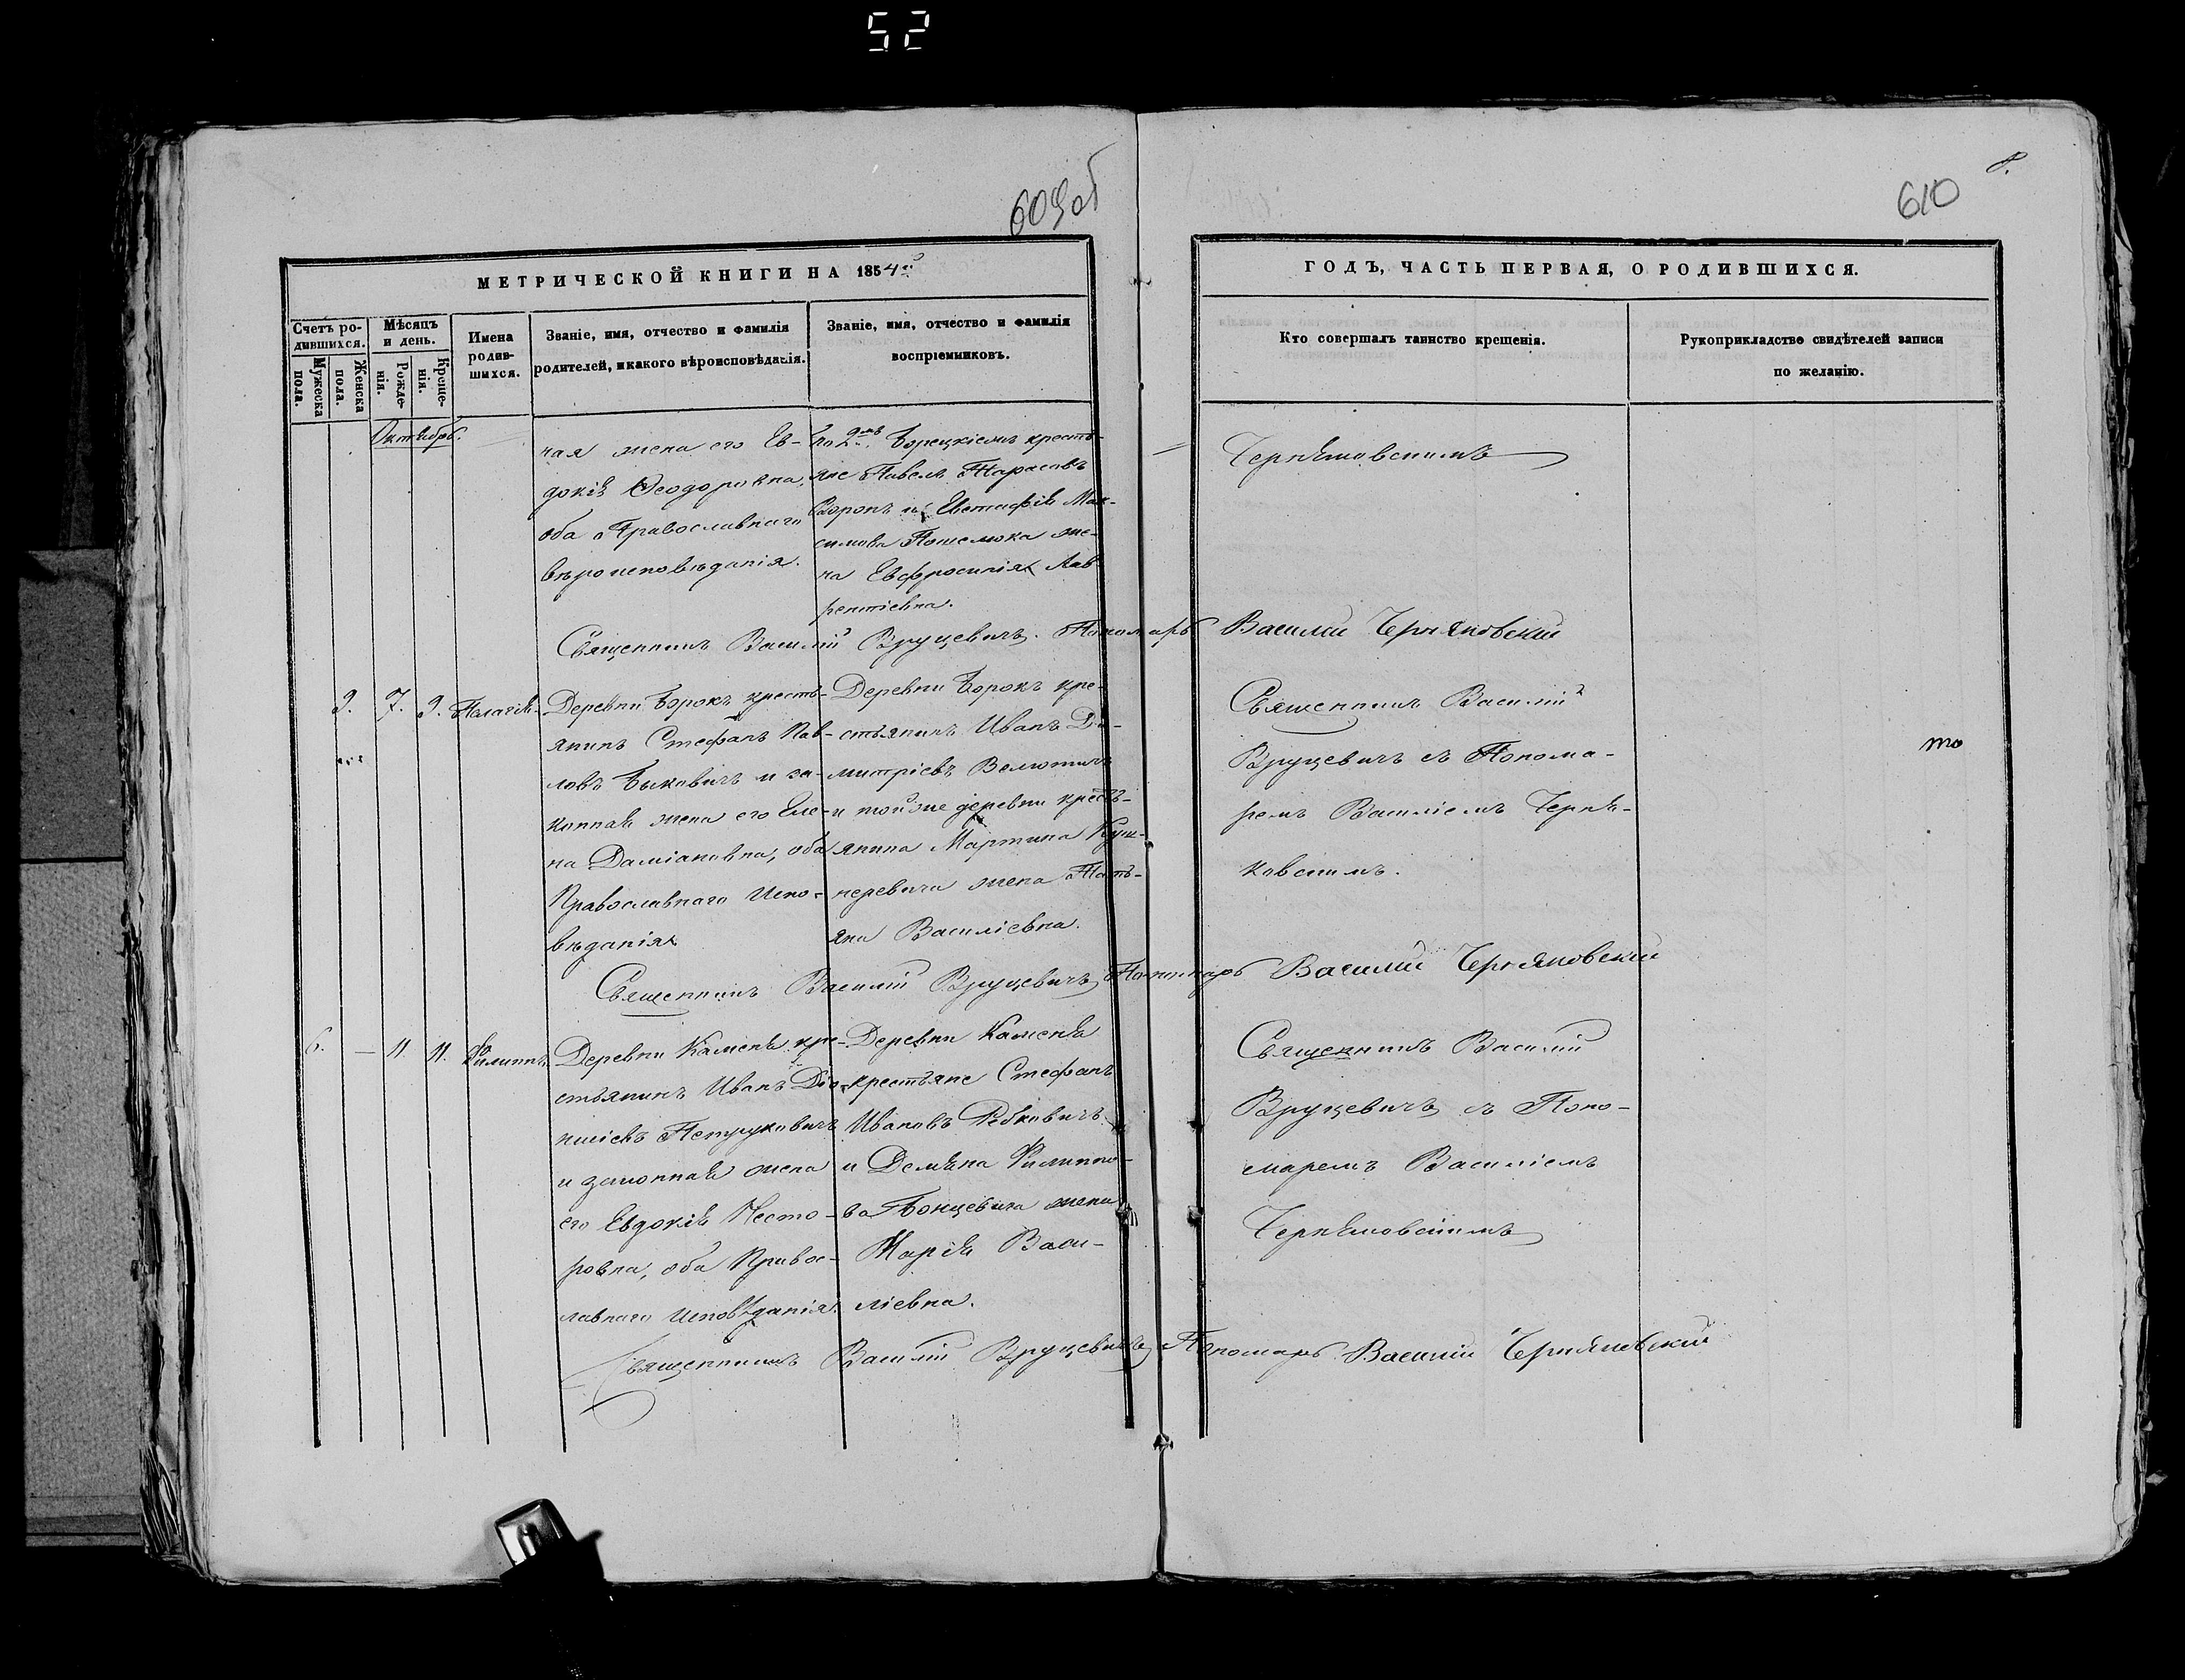 52
609об
610
8.
МЕТРИЧЕСКОЙ КНИГИ НА 1854й
ГОДЪ, ЧАСТЬ ПЕРВАЯ, О РОДИВШИХСЯ.
Счетъ ро-
дившихся.
Мужеска
пола.
Женска
пола.
Мѣсяцъ
и день.
Рожде-
нія.
Креще-
нія.
Имена
родив-
шихся.
Званіе, имя, отчество и фамилія
родителей, и какого вѣроисповѣданія.
Званіе, имя, отчество и фамилія
воспріемниковъ.
Кто совершалъ таинство крещенія.
Рукоприкладство свидѣтелей записи
по желанію.
Октябрь.
ная жена его Ев-
докія Ѳеодоровна,
оба Православнаго
вѣроисповѣданія.
крестья-
не Павелъ Тарасовъ
Воронъ и Евстафія Мак-
симова Пошелюка же-
на Евфросинія Лав-
рентіевна.
Черняковскимъ
Священникъ Василій Вруцевичъ. Пономарь Василій Черняковский
9. 7. 9. Пелагія.
Деревни Борокъ кресть-
янинъ Стефанъ Пав-
ловъ Быковичъ и за-
конная жена его Еле-
на Даміановна, оба
Православнаго испо-
вѣданія
Деревни Борокъ кре-
стьянинъ Иванъ Ди-
митріевъ Велютичъ
и той же деревни кресть-
янина Мартина Куш-
неревича жена Тать-
яна Василіевна.
Священникъ Василій
Вруцевичъ съ Понома-
ремъ Василіемъ Черня-
ковскимъ.
то
Священникъ Василій Вруцевичъ Пономарь Василий Черняковский
6. — 11. 11. Филиппъ.
Деревни Каменя кре-
стьянинъ Иванъ Діо-
нисіевъ Петруковичъ
и законная жена
его Евдокія Несто-
ровна, оба Правос-
лавнаго исповѣданія.
Деревни Каменя
крестьяне Стефанъ
Ивановъ Рабковичъ
и Демьяна Филиппо-
ва Бонцевича жена
Марія Васи-
ліевна.
Священникъ Василій
Вруцевичъ съ Поно-
маремъ Василіемъ
Черняковскимъ
Священникъ Василій Вруцевичъ Пономарь Василій Черняковский